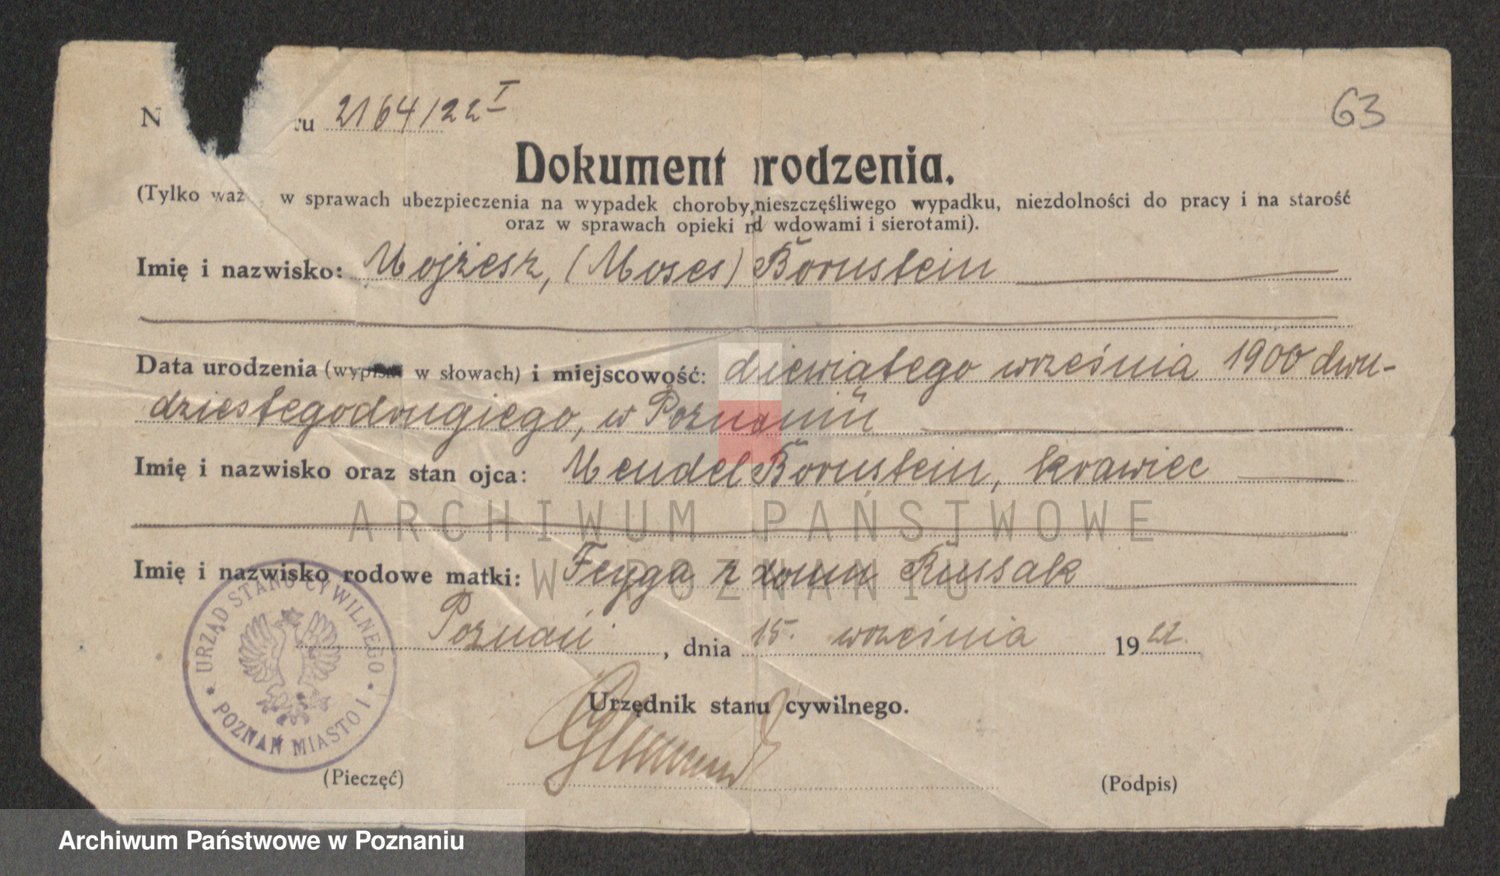 N ru 2164/22 I
63
Dokument urodzenia.
(Tylko waż w sprawach ubezpieczenia na wypadek choroby, nieszczęśliwego wypadku, niezdolności do pracy i na starość
oraz w sprawach opieki nad wdowami i sierotami).
Imię i nazwisko: Mojżesz, (Moses) Bornstein
Data urodzenia (wypisać w słowach) i miejscowość: dziewiątego września 1900 dwu-
dziestegodrugiego, w Poznaniu
Imię i nazwisko oraz stan ojca: Mendel Bornstein, krawiec
ARCHIWUM PAŃSTWOWE
Imię i nazwisko rodowe matki: Feyga z domu Russak
W POZNANIU
Poznań, dnia 15. września 1922.
Urzędnik stanu cywilnego.
URZĄD STANU CYWILNEGO * POZNAŃ MIASTO I *
(Pieczęć) (Podpis)
Archiwum Państwowe w Poznaniu